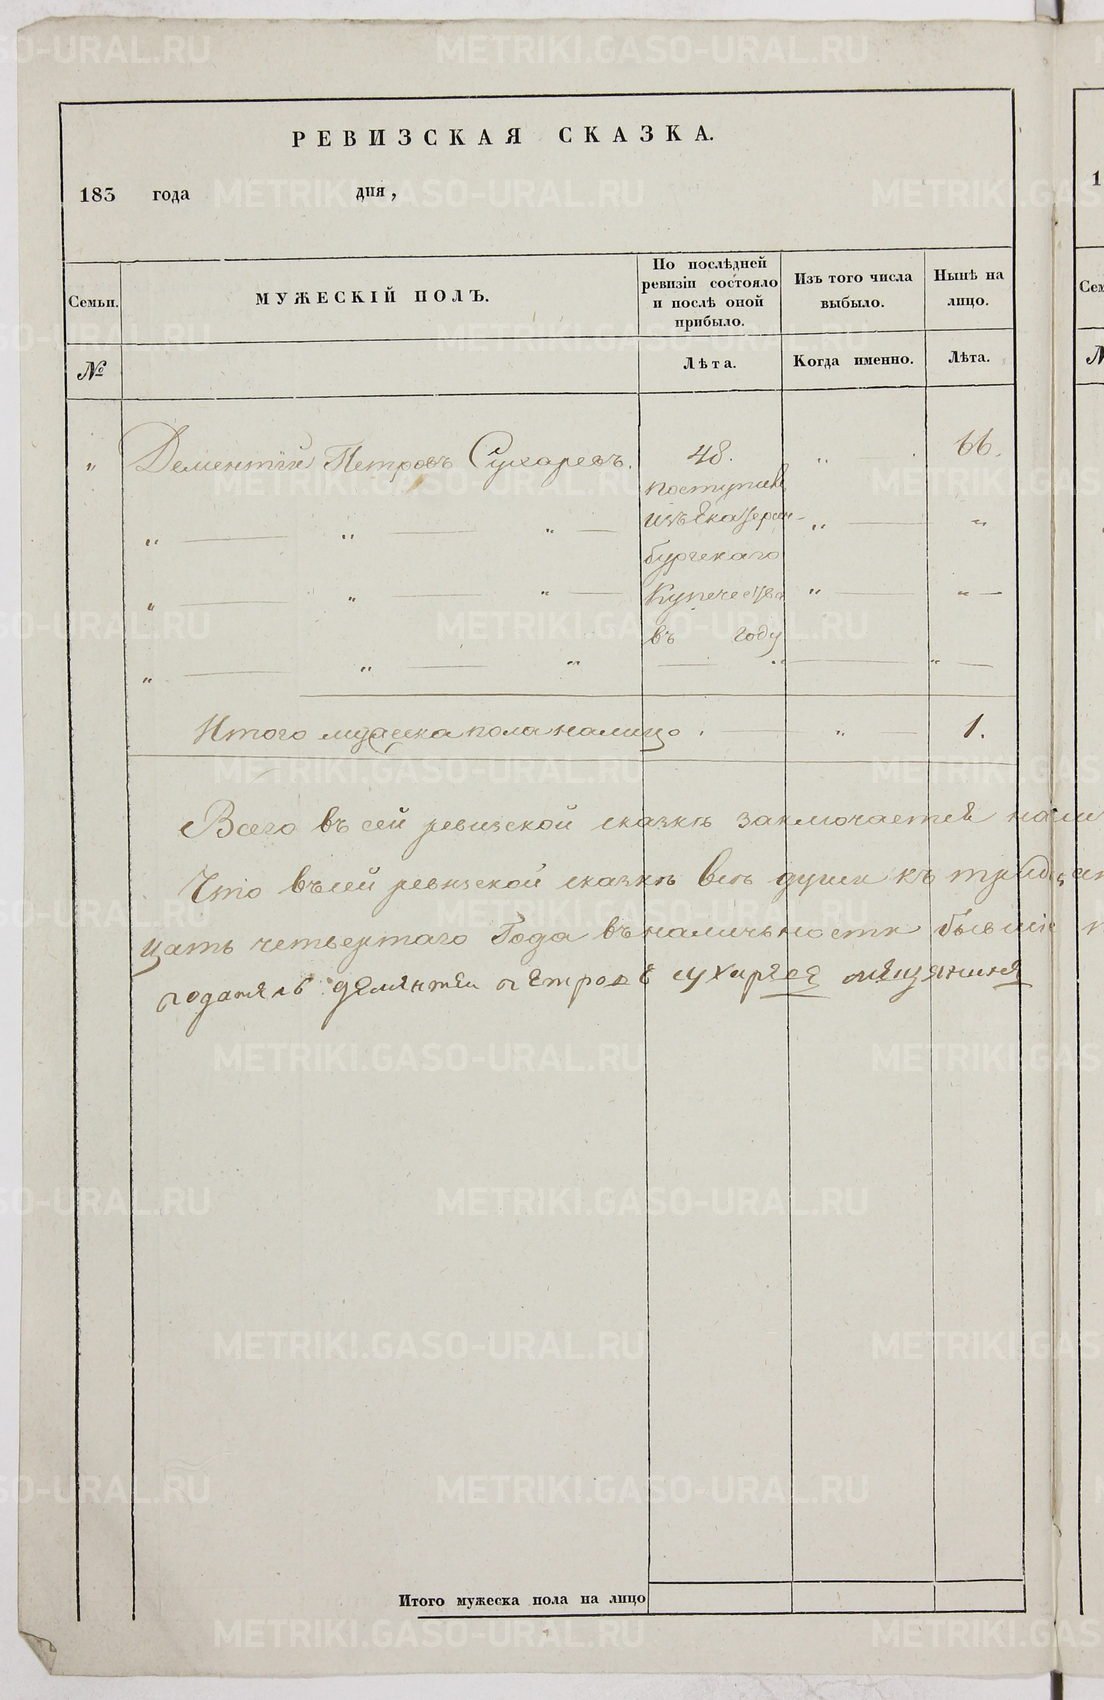 РЕВИЗСКАЯ СКАЗКА.
183 года дня,
Семьи. МУЖЕСКІЙ ПОЛЪ. По послѣдней ревизіи состояло и послѣ оной прибыло. Изъ того числа выбыло. Нынѣ на лицо.
№ Лѣта. Когда именно. Лѣта.
" Дементій Петровъ Сухаревъ. 48. " 66.
поступилъ
" " " изъ Екатерин- " "
бургскаго
" " " Купечества " "
въ году
" " " " "
Итого мужеска пола налицо. " 1.
Всего въ сей ревизской сказкѣ заключается нали
Что въ сей ревизской сказкѣ всѣ души къ тридцат
цать четвертаго Года въ наличьности бывшіе п
податель демянтеи петровъ сухарев мещянинъ
Итого мужеска пола на лицо
METRIKI.GASO-URAL.RU